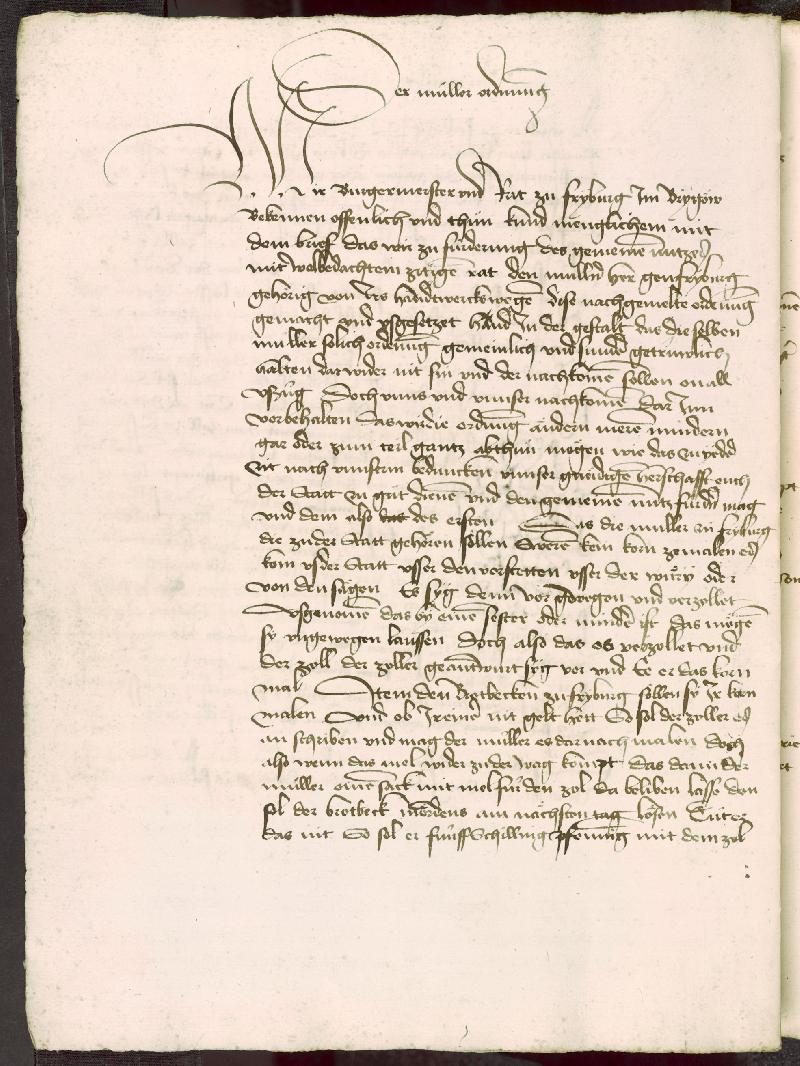 Der müller ordnung
Wir Burgermeister und Rat zu fryburg Im Brÿßgow
Bekennen offenlich und thün kund menglichem mit
dem brief das wir zu fürderung des gemeinē nutzes
mit wolbedachtem zitigē rat den mullrn her gen fryburg
gehörig von irs handtwercks wegē dise nachgemelte ordnūg
gemacht und vsgesetzet hand In der gestalt das die selben
müller solich ordnūg gemeinlich und sunder getruwlich
halten darwider nit sin und der nachkomē söllen on all
vffzüg Doch unns und unnser nachkomē dar Inn
vorbehalten das wir die ordnūg ändern meren mindern
gar oder zum teil gantz abthün mögen wie das zu yeder
zit nach unnserm beduncken unnser gnedigē herschafft ouch
der Statt zu güt dienē und den gemeinē nutz fürdrn mag
und dem also des ersten Das die müller zu fryburg
die zu der Statt gehören söllen Swerē kein korn ze malen es
kom vs der Statt vsser den vorstetten vsser der würy oder
von den sägen Es syg denn vor gewegen und verzollet
Usgenomē das by einē sester oder minder ist das mögē
sy ungewegen laussen doch also das es verzollet und
der zoll der zoller geantwurt syg vor und Ee er das korn
mal Item den Brotbecken zu fryburg söllen sy Ir korn
malen Und ob Ir einē nit gelt hett So sol der zoller es
an schriben und mag der müller es darnach malen doch
also wenn das mel wider zu der wag kompt das dann der
müller einē sack mit mel für den zol da beliben lasse den
sol der brotbeck mordens am nächsten tag lösen Tüt er
das nit So sol er fünff Schilling pfenning mit dem zol